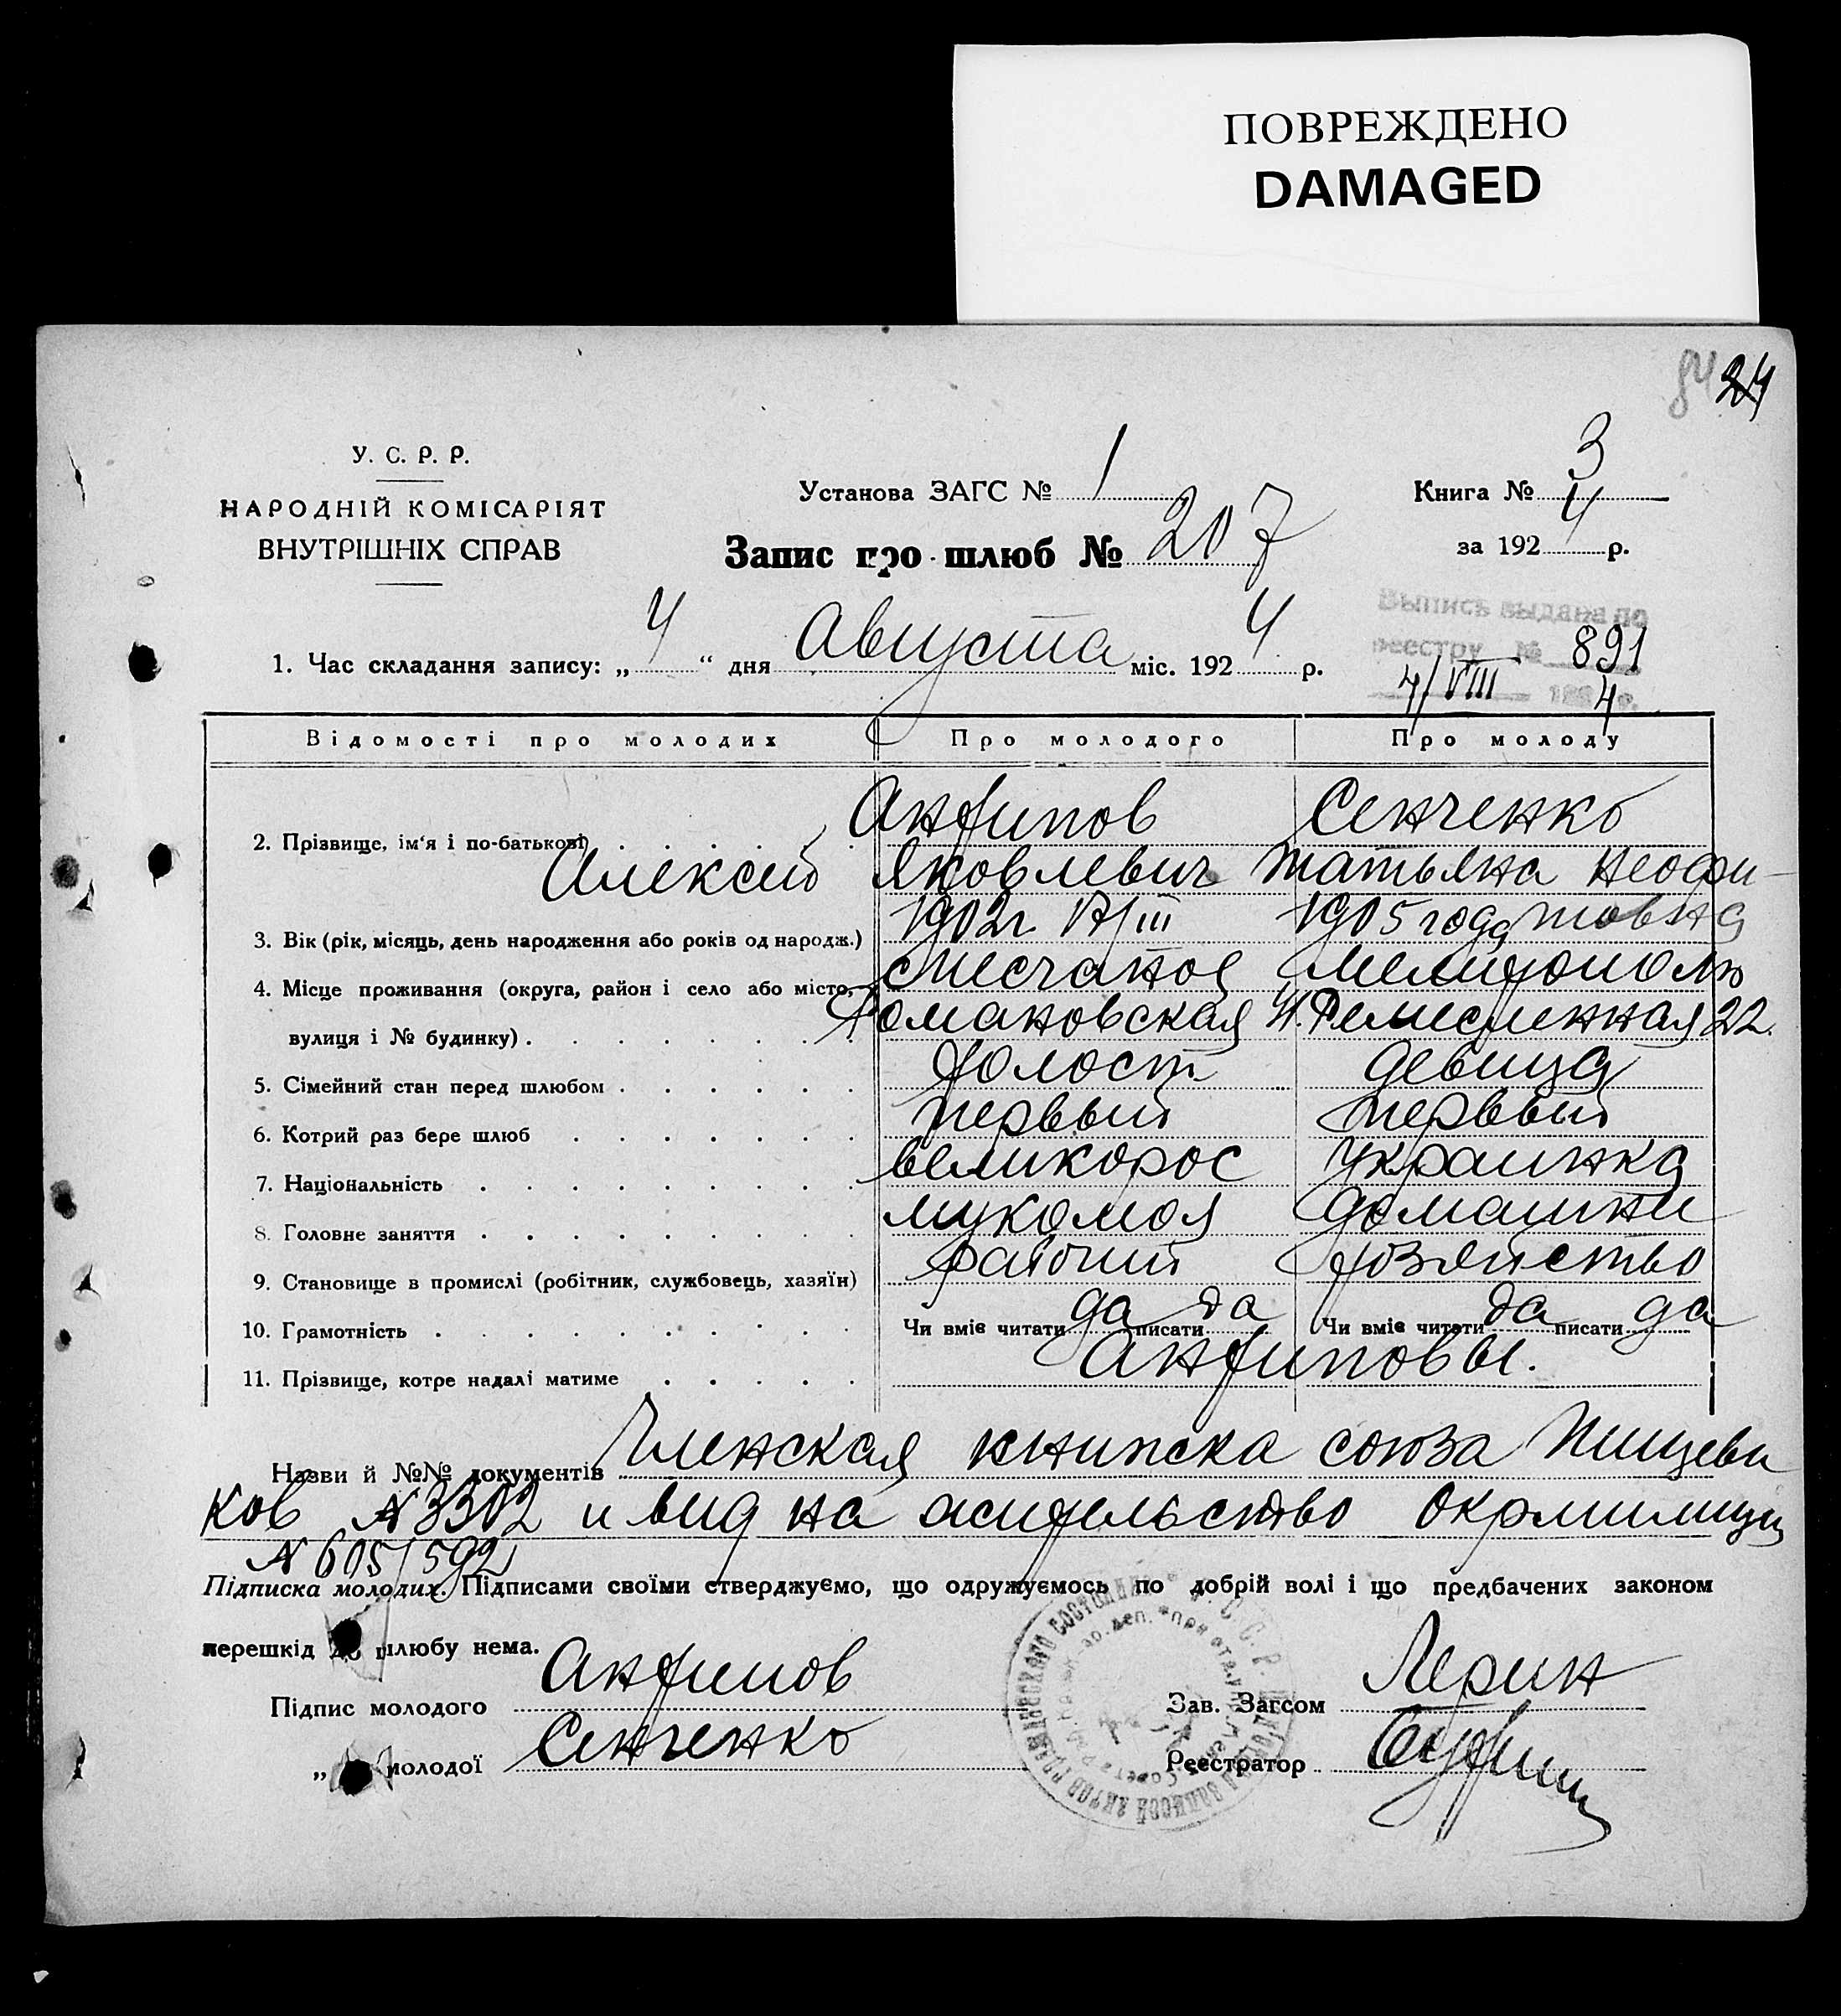 ПОВРЕЖДЕНО
DAMAGED
84 24
У. С. Р. Р.
НАРОДНІЙ КОМІСАРІЯТ
ВНУТРІШНІХ СПРАВ
Установа ЗАГС № 1
Книга № 3
Запис про шлюб № 207
за 1924 р.
Выпись выдана по
реестру № 891
4/VIII 1924 г.
1. Час складання запису: „4“ дня Августа міс. 1924 р.
Відомості про молодих Про молодого Про молоду
Анфилов Сенченко
2. Прізвище, ім‘я і по-батькові
Алексей Яковлевич Татьяна Неофи-
1902 г. 17/III 1905 года товна
3. Вік (рік, місяць, день народження або років од народж.)
с Песчаное Мелитополь
4. Місце проживання (округа, район і село або місто,
Романовская Н. Ремесленная 22.
вулиця і № будинку)
холост девица
5. Сімейний стан перед шлюбом
первый первый
6. Котрий раз бере шлюб
великорос украинка
7. Національність
мукомол домашни
8. Головне заняття
рабочий хозяйство
9. Становище в промислі (робітник, службовець, хазяїн)
10. Грамотність Чи вміє читати да писати да Чи вміє читати да писати да
Анфиловы.
11. Прізвище, котре надалі матиме
Назви й №№ документів Членская книжка союза Пищеви
ков N 3302 и вид на жительство Окрмилиции
N 605/592
Підписка молодих. Підписами своїми стверджуємо, що одружуємось по добрій волі і що предбачених законом
перешкід до шлюбу нема.
Підпис молодого Анфилов
Зав. Загсом Лерин
„ молодої Сенченко
Реєстратор